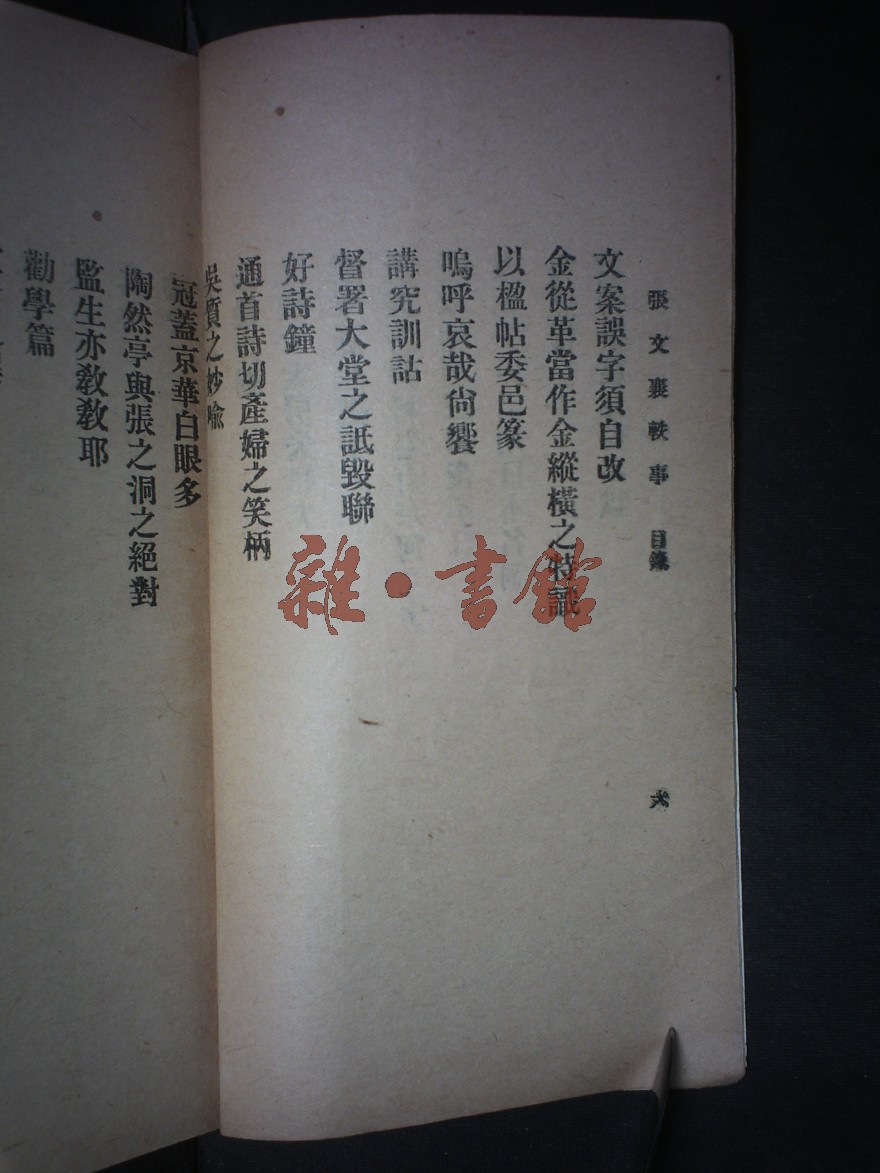 張文襄軼事 目錄
六
文案誤字須自改
金從革當作金縱橫之特識
以楹帖委邑篆
嗚呼哀哉尙饗
講究訓詁
督署大堂之詆毀聯
好詩鐘
通首詩切產婦之笑柄
吳質之妙喻
冠蓋京華白眼多
陶然亭與張之洞之絕對
監生亦敎敎耶
勸學篇
雜·書館